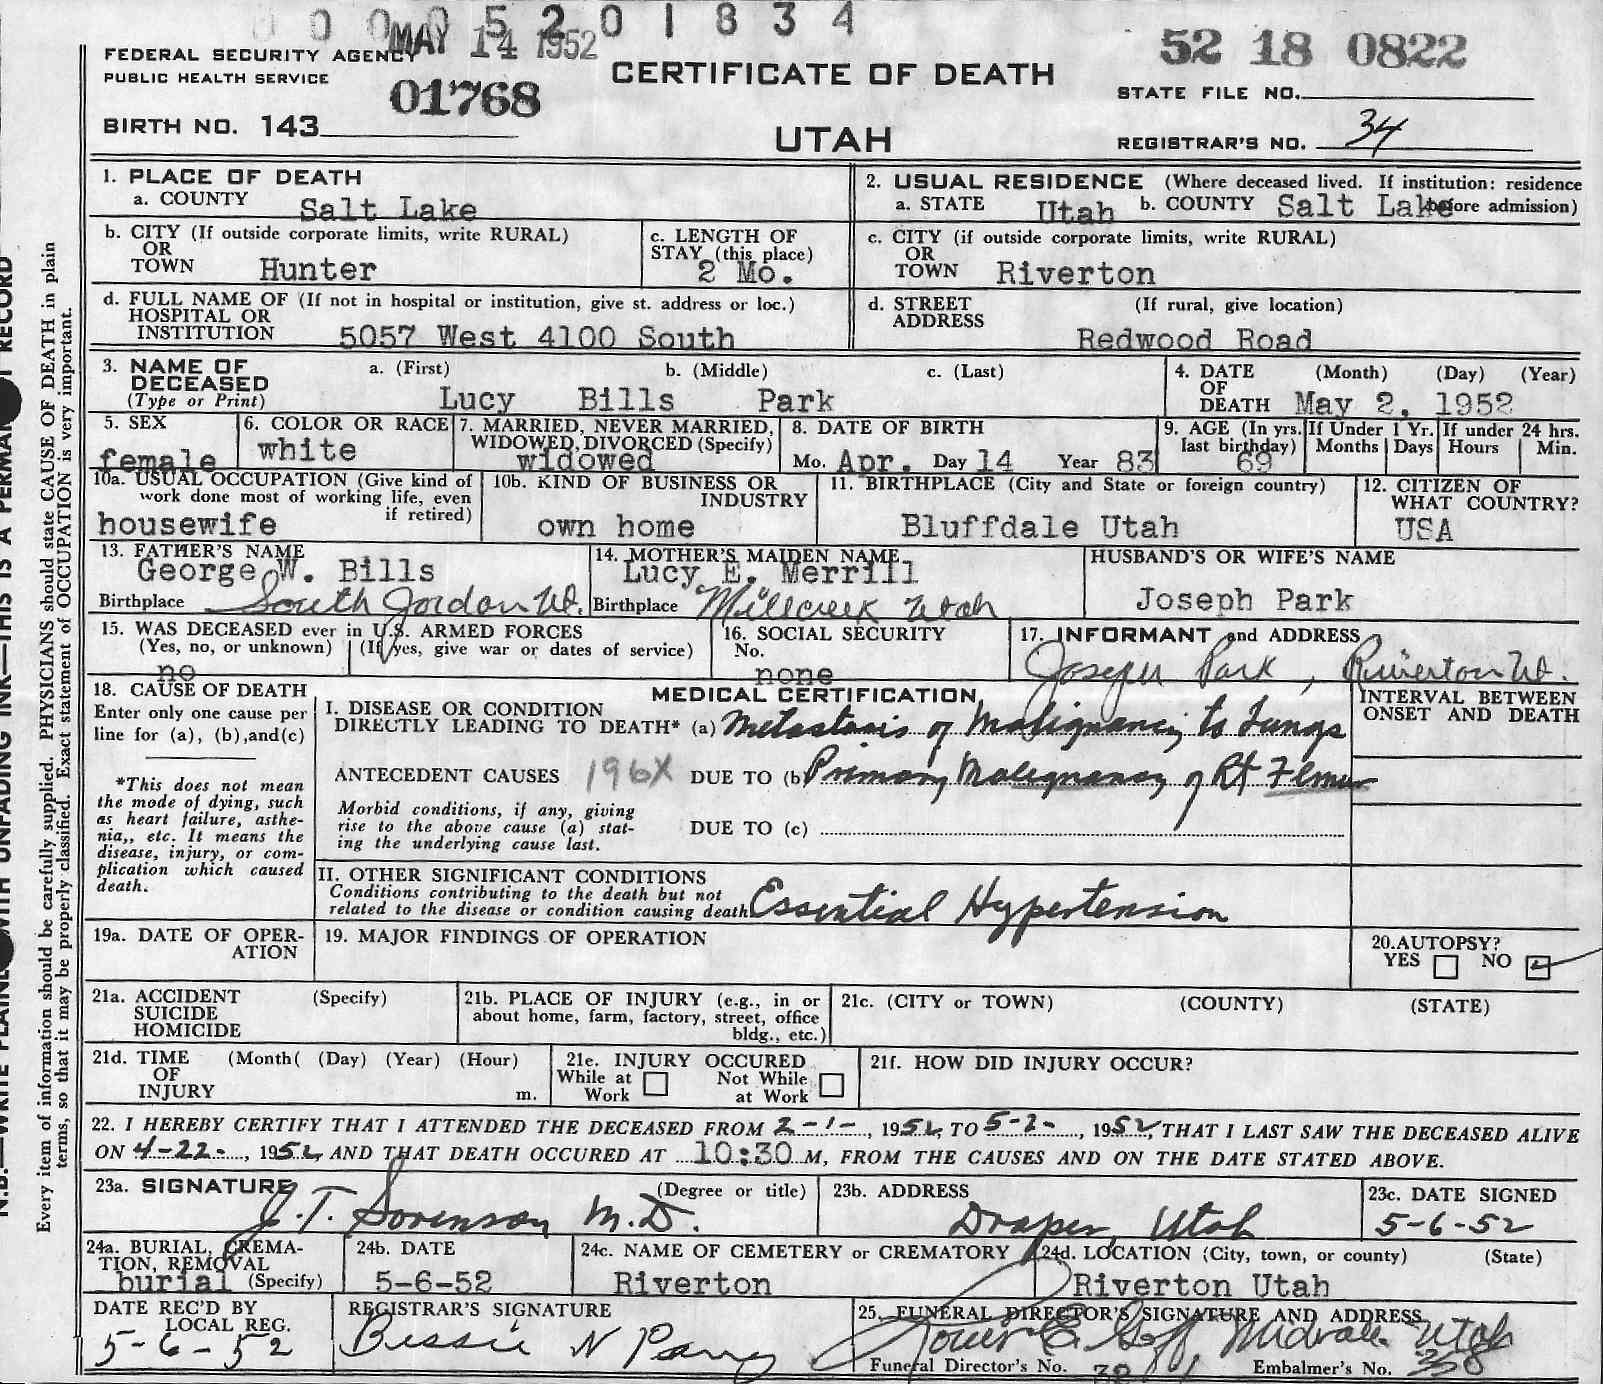 0 0 0 0 5 2 0 1 8 3 4
MAY 14 1952
52 18 0822
FEDERAL SECURITY AGENCY
PUBLIC HEALTH SERVICE
01768
CERTIFICATE OF DEATH
STATE FILE NO.
BIRTH NO. 143
UTAH
REGISTRAR'S NO. 34
1. PLACE OF DEATH
a. COUNTY Salt Lake
2. USUAL RESIDENCE (Where deceased lived. If institution: residence before admission)
a. STATE Utah b. COUNTY Salt Lake
b. CITY (If outside corporate limits, write RURAL)
OR
TOWN Hunter
c. LENGTH OF
STAY (this place)
2 Mo.
c. CITY (if outside corporate limits, write RURAL)
OR
TOWN Riverton
d. FULL NAME OF (If not in hospital or institution, give st. address or loc.)
HOSPITAL OR
INSTITUTION 5057 West 4100 South
d. STREET (If rural, give location)
ADDRESS
Redwood Road
3. NAME OF
DECEASED
(Type or Print)
a. (First) b. (Middle) c. (Last)
Lucy Bills Park
4. DATE (Month) (Day) (Year)
OF
DEATH May 2, 1952
5. SEX
female
6. COLOR OR RACE
white
7. MARRIED, NEVER MARRIED,
WIDOWED, DIVORCED (Specify)
widowed
8. DATE OF BIRTH
Mo. Apr. Day 14 Year 83
9. AGE (In yrs.
last birthday)
69
If Under 1 Yr.
Months Days
If under 24 hrs.
Hours Min.
10a. USUAL OCCUPATION (Give kind of
work done most of working life, even
if retired)
housewife
10b. KIND OF BUSINESS OR
INDUSTRY
own home
11. BIRTHPLACE (City and State or foreign country)
Bluffdale Utah
12. CITIZEN OF
WHAT COUNTRY?
USA
13. FATHER'S NAME
George W. Bills
Birthplace South Jordan Ut.
14. MOTHER'S MAIDEN NAME
Lucy E. Merrill
Birthplace Millcreek Utah
HUSBAND'S OR WIFE'S NAME
Joseph Park
15. WAS DECEASED ever in U.S. ARMED FORCES
(Yes, no, or unknown) (If yes, give war or dates of service)
no
16. SOCIAL SECURITY
No.
none
17. INFORMANT and ADDRESS
Joseph Park, Riverton Ut.
18. CAUSE OF DEATH
Enter only one cause per
line for (a), (b), and (c)
*This does not mean
the mode of dying, such
as heart failure, asthe-
nia,, etc. It means the
disease, injury, or com-
plication which caused
death.
MEDICAL CERTIFICATION
I. DISEASE OR CONDITION
DIRECTLY LEADING TO DEATH* (a) Metastasis of Malignancy to Lungs
INTERVAL BETWEEN
ONSET AND DEATH
ANTECEDENT CAUSES 196X DUE TO (b) Primary Malignancy of Rt Femur
Morbid conditions, if any, giving
rise to the above cause (a) stat-
ing the underlying cause last.
DUE TO (c)
II. OTHER SIGNIFICANT CONDITIONS
Conditions contributing to the death but not
related to the disease or condition causing death
Essential Hypertension
19a. DATE OF OPER-
ATION
19. MAJOR FINDINGS OF OPERATION
20. AUTOPSY?
YES NO
21a. ACCIDENT (Specify)
SUICIDE
HOMICIDE
21b. PLACE OF INJURY (e.g., in or
about home, farm, factory, street, office
bldg., etc.)
21c. (CITY or TOWN) (COUNTY) (STATE)
21d. TIME (Month( (Day) (Year) (Hour)
OF
INJURY m.
21e. INJURY OCCURED
While at Work Not While at Work
21f. HOW DID INJURY OCCUR?
22. I HEREBY CERTIFY THAT I ATTENDED THE DECEASED FROM 2-1-, 1952, TO 5-2-, 1952, THAT I LAST SAW THE DECEASED ALIVE
ON 4-22-, 1952, AND THAT DEATH OCCURED AT 10:30 M, FROM THE CAUSES AND ON THE DATE STATED ABOVE.
23a. SIGNATURE (Degree or title)
J.T. Sorenson M.D.
23b. ADDRESS
Draper, Utah
23c. DATE SIGNED
5-6-52
24a. BURIAL, CREMA-
TION, REMOVAL
burial (Specify)
24b. DATE
5-6-52
24c. NAME OF CEMETERY or CREMATORY
Riverton
24d. LOCATION (City, town, or county) (State)
Riverton Utah
DATE REC'D BY
LOCAL REG.
5-6-52
REGISTRAR'S SIGNATURE
Bessie N
25. FUNERAL DIRECTOR'S SIGNATURE AND ADDRESS
Goff, Midvale Utah
Funeral Director's No. 32 Embalmer's No. 358
Every item of information should be carefully supplied. PHYSICIANS should state CAUSE OF DEATH in plain
terms, so that it may be properly classified. Exact statement of OCCUPATION is very important.
WITH UNFADING INK—THIS IS A
RECORD